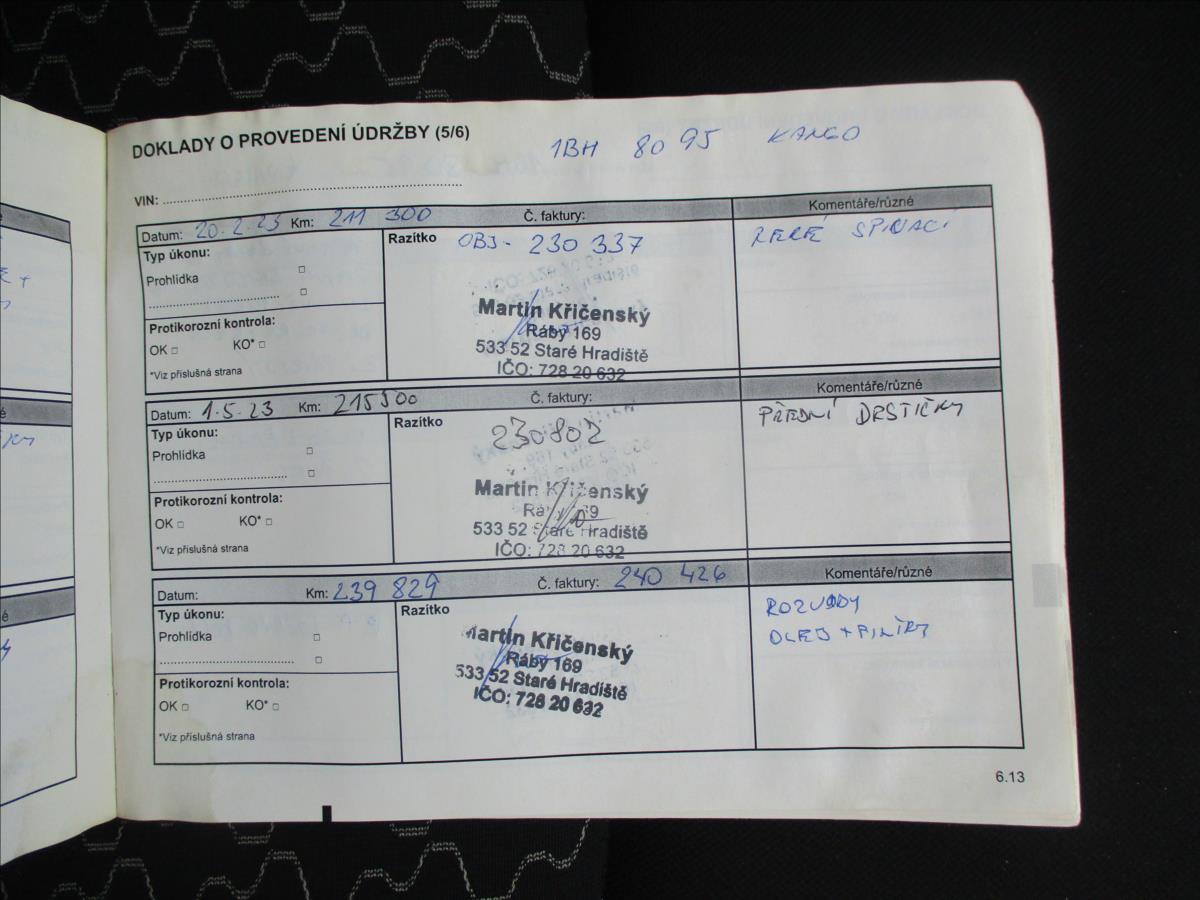 DOKLADY O PROVEDENÍ ÚDRŽBY (5/6)
1BH 8095 KANGO
VIN:
Datum: 20.2.23 Km: 211 300 Č. faktury: Komentáře/různé
Typ úkonu:
Prohlídka
Razítko OBJ- 230 337
RELÉ SPÍNACÍ
Martin Křičenský
Ráby 169
533 52 Staré Hradiště
IČO: 728 20 632
Protikorozní kontrola:
OK KO*
*Viz příslušná strana
Datum: 1.5.23 Km: 215300 Č. faktury: Komentáře/různé
Typ úkonu:
Prohlídka
Razítko 230802
PŘEDNÍ DESTIČKY
Martin Křičenský
Ráby 169
533 52 Staré Hradiště
IČO: 728 20 632
Protikorozní kontrola:
OK KO*
*Viz příslušná strana
Datum: Km: 239 829 Č. faktury: 240 426 Komentáře/různé
Typ úkonu:
Prohlídka
Razítko
ROZVODY
OLEJ + FILTRY
Martin Křičenský
Ráby 169
533 52 Staré Hradiště
IČO: 728 20 632
Protikorozní kontrola:
OK KO*
*Viz příslušná strana
6.13